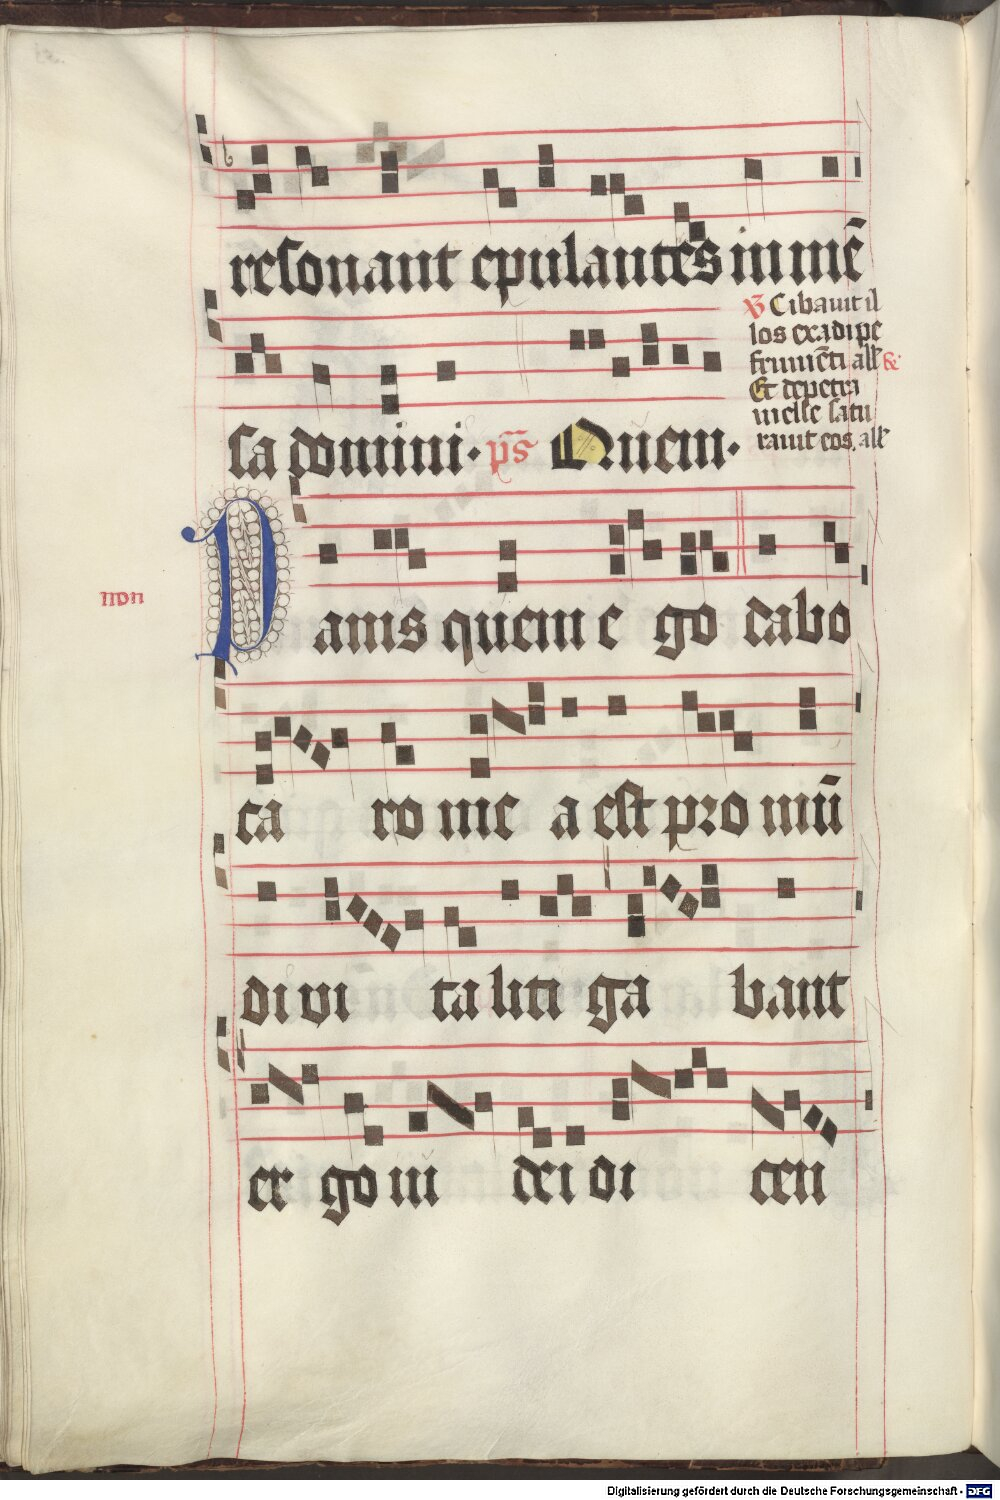 resonant epulantes in mē
sa domini. p̄s Quem.
℣ Cibauit il
los ex adipe
frumēti all̄ &
Et de petra
melle satu
rauit eos. all̄
non
Panis quem e go dabo
ca ro me a est pro mū
di vi ta liti ga bant
er go iu dei di cen
Digitalisierung gefördert durch die Deutsche Forschungsgemeinschaft - DFG